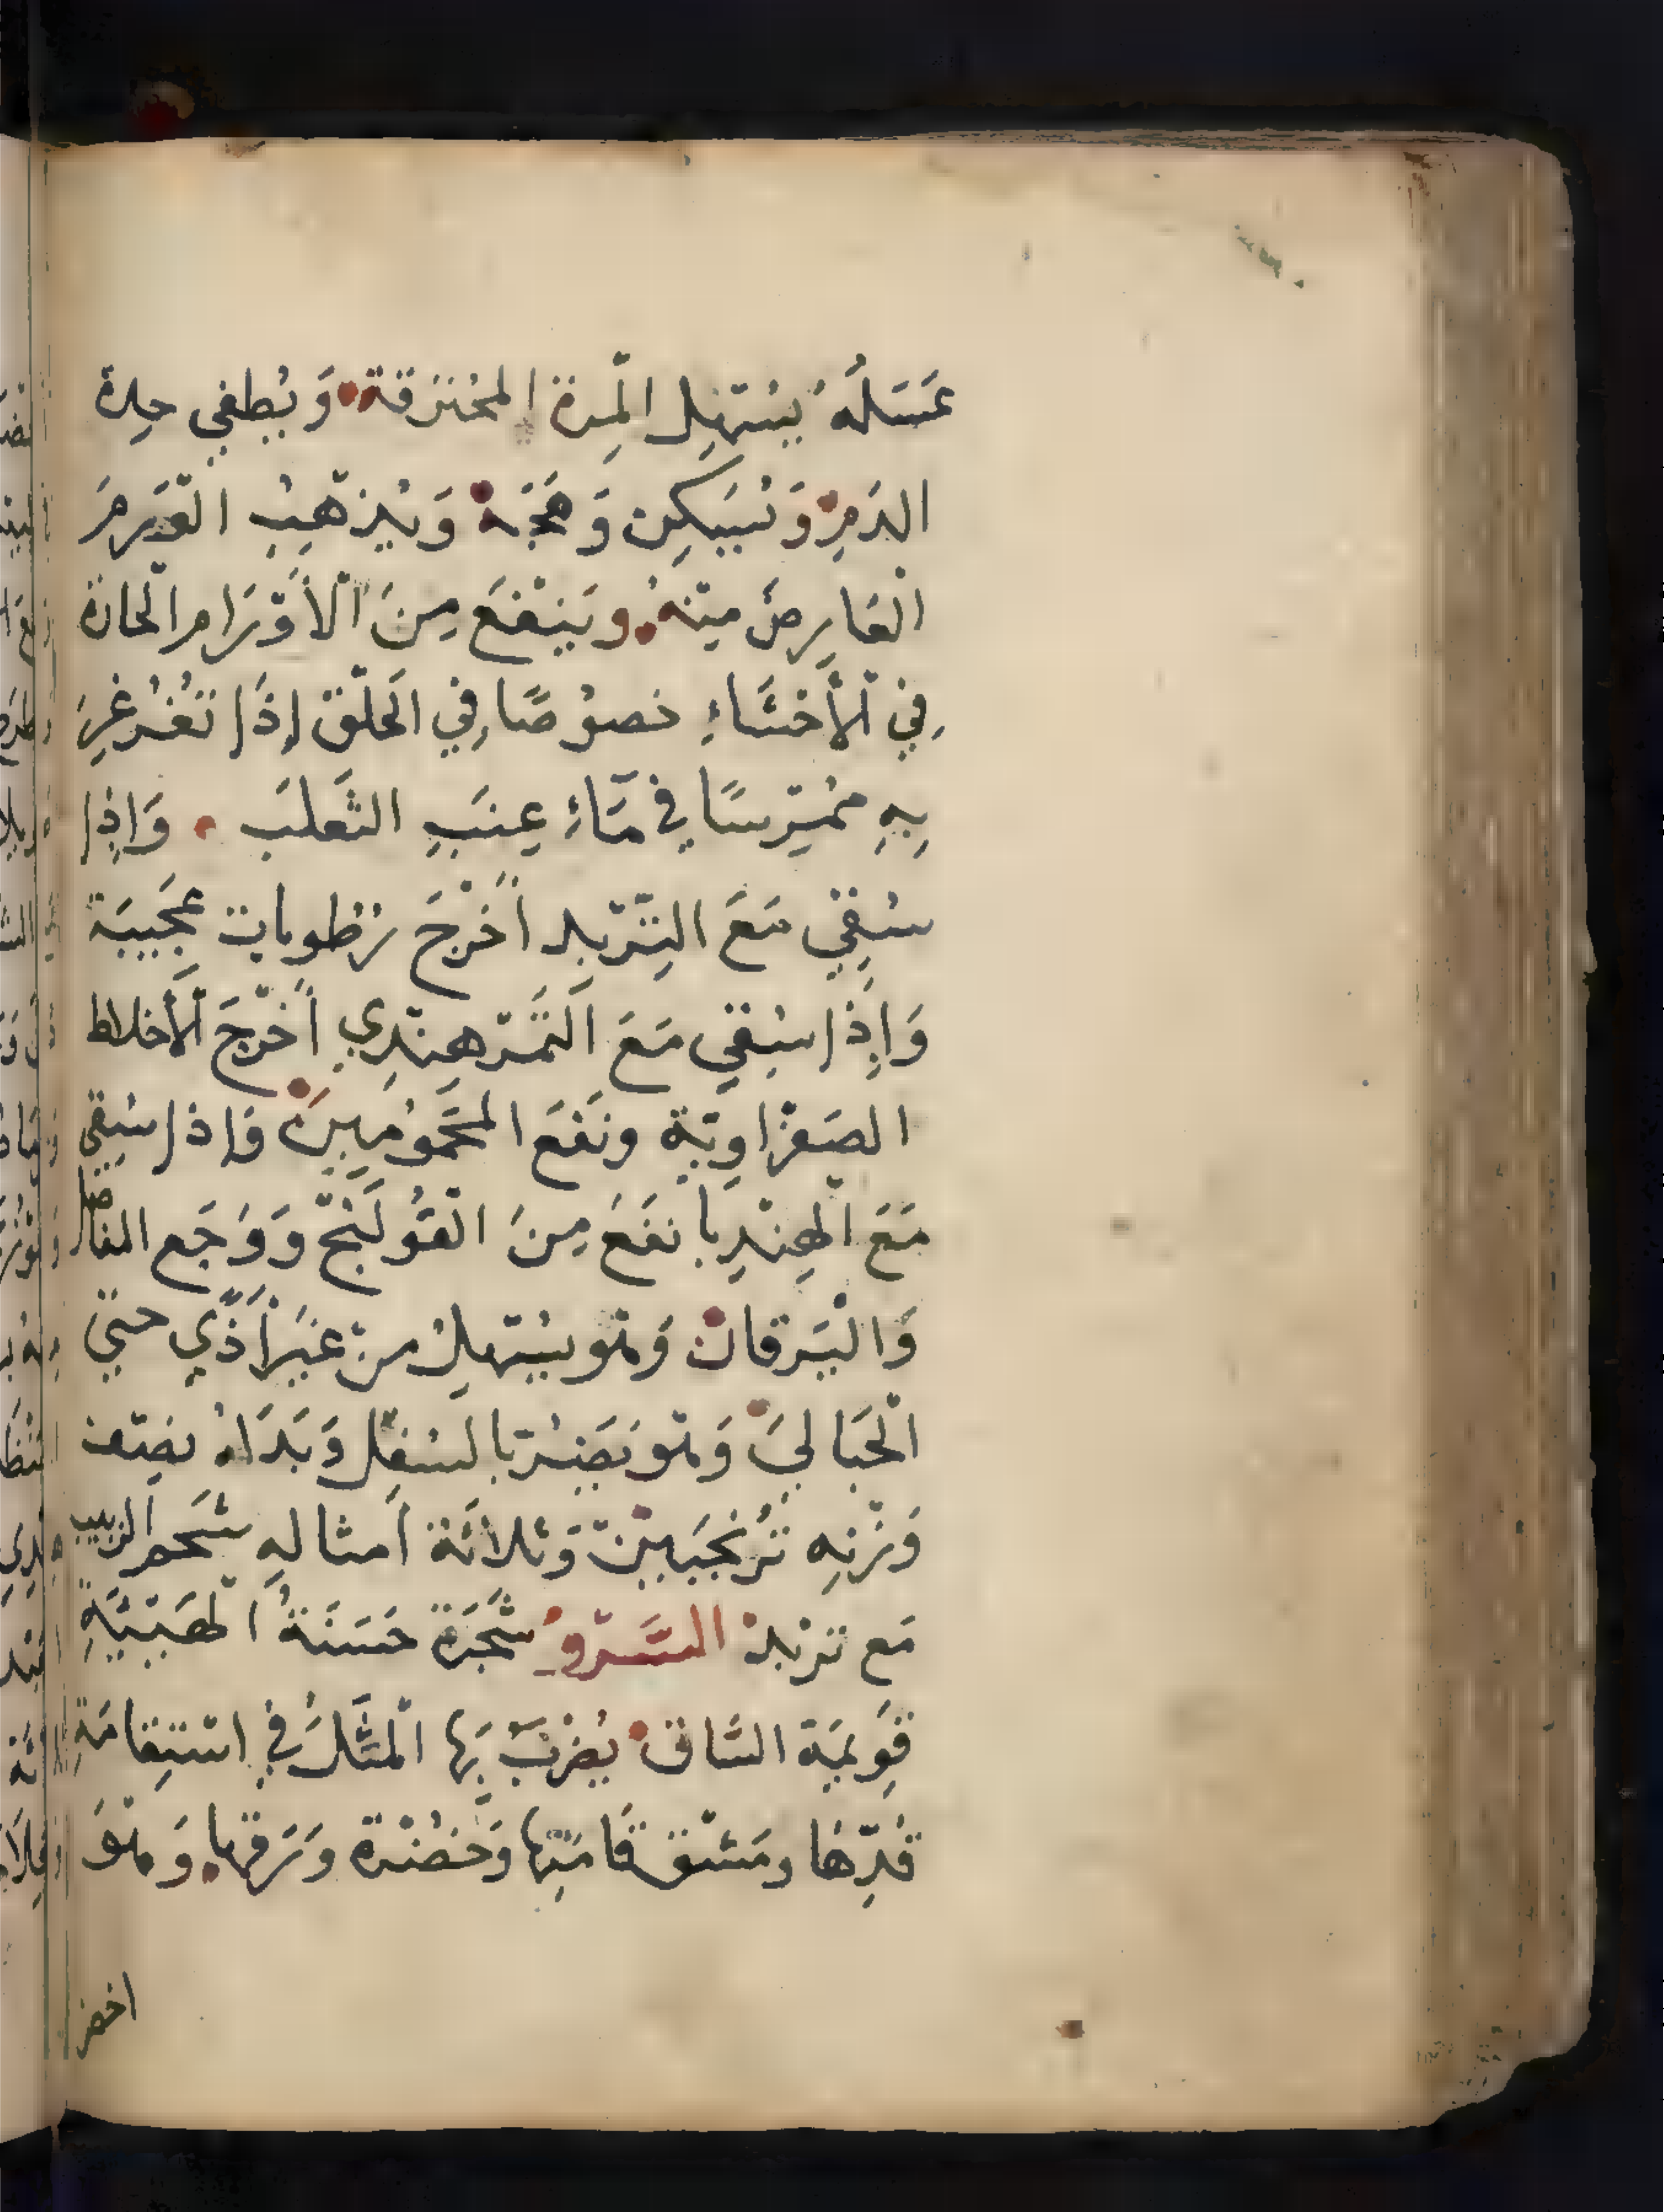 عَسَلُهُ يُسَهِّل المِرة المحُترقة وَيُطفي حِدة
الدَمِ وَيُسَكِن وَهَجَهُ وَيُذهِبُ الوَرمَ
العَارِضَ مِنهُ وَيَنفَعَ مِنَ الأَورَام الحادة
فِي الأَحشَاءِ خصوُصًا فِي الحَلق إِذَا تغُرغِرَ
بِهِ مُمَرسًا في مَاءِ عِنَبِ الثَعلَب وَإِذا
سُقِي مَعَ التِربِد أَخرَجَ رُطوبات عَجيبَة
وَإِذا سُقي مَعَ التَمَر هِندِي أَخرَجَ الأَخلاط
الصَفراوِيَةِ ونَفَعَ المحَمُومِينَ وَاذا سُقِي
مَعَ الهِندِبا نفَعَ مِنَ القُولَنج وَوَجَع المفاصل
وَاليَرقان وَهو يُسَهِلُ مِن غَيرَ أَذَي حتي
الحَبَالي وَهو يَضُر بالسُفل وَبَدَلهُ نِصف
وَزنِهِ تُرنجَبِين وَثلاثَة أَمثالهِ شَحم الزبيب
مَع تربد السَّروُ شَجَرَة حَسَنَةُ الهَيئَةِ
قَوِيمَة السَاق يُضرَبُ بِهَا المَثَلُ في استِقامَةِ
قَدِّهَا ومَشق قَامَتِها وَخضُرة وَرَقِها وَهوَ
اخضر